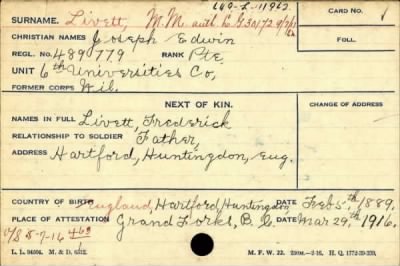 649-L-11962
SURNAME. Livett, M.M. auth. L.G. 30172 9/7/17 CARD NO. 1
CHRISTIAN NAMES Joseph Edwin FOLL.
REGL. NO. 4890779 RANK Pte.
UNIT 6th Universities Co,
FORMER CORPS Nil.
NEXT OF KIN. CHANGE OF ADDRESS
NAMES IN FULL Livett, Frederick
RELATIONSHIP TO SOLDIER Father,
ADDRESS Hartford, Huntingdon, Eng.
COUNTRY OF BIRTH England, Hartford, Huntingdon DATE Feb 5th 1889.
PLACE OF ATTESTATION Grand Forks, B.C. DATE Mar 29th, 1916.
O/S 5-7-16
L. L. M. & D. M. F. W. 22. H. Q. 1772-39-339.